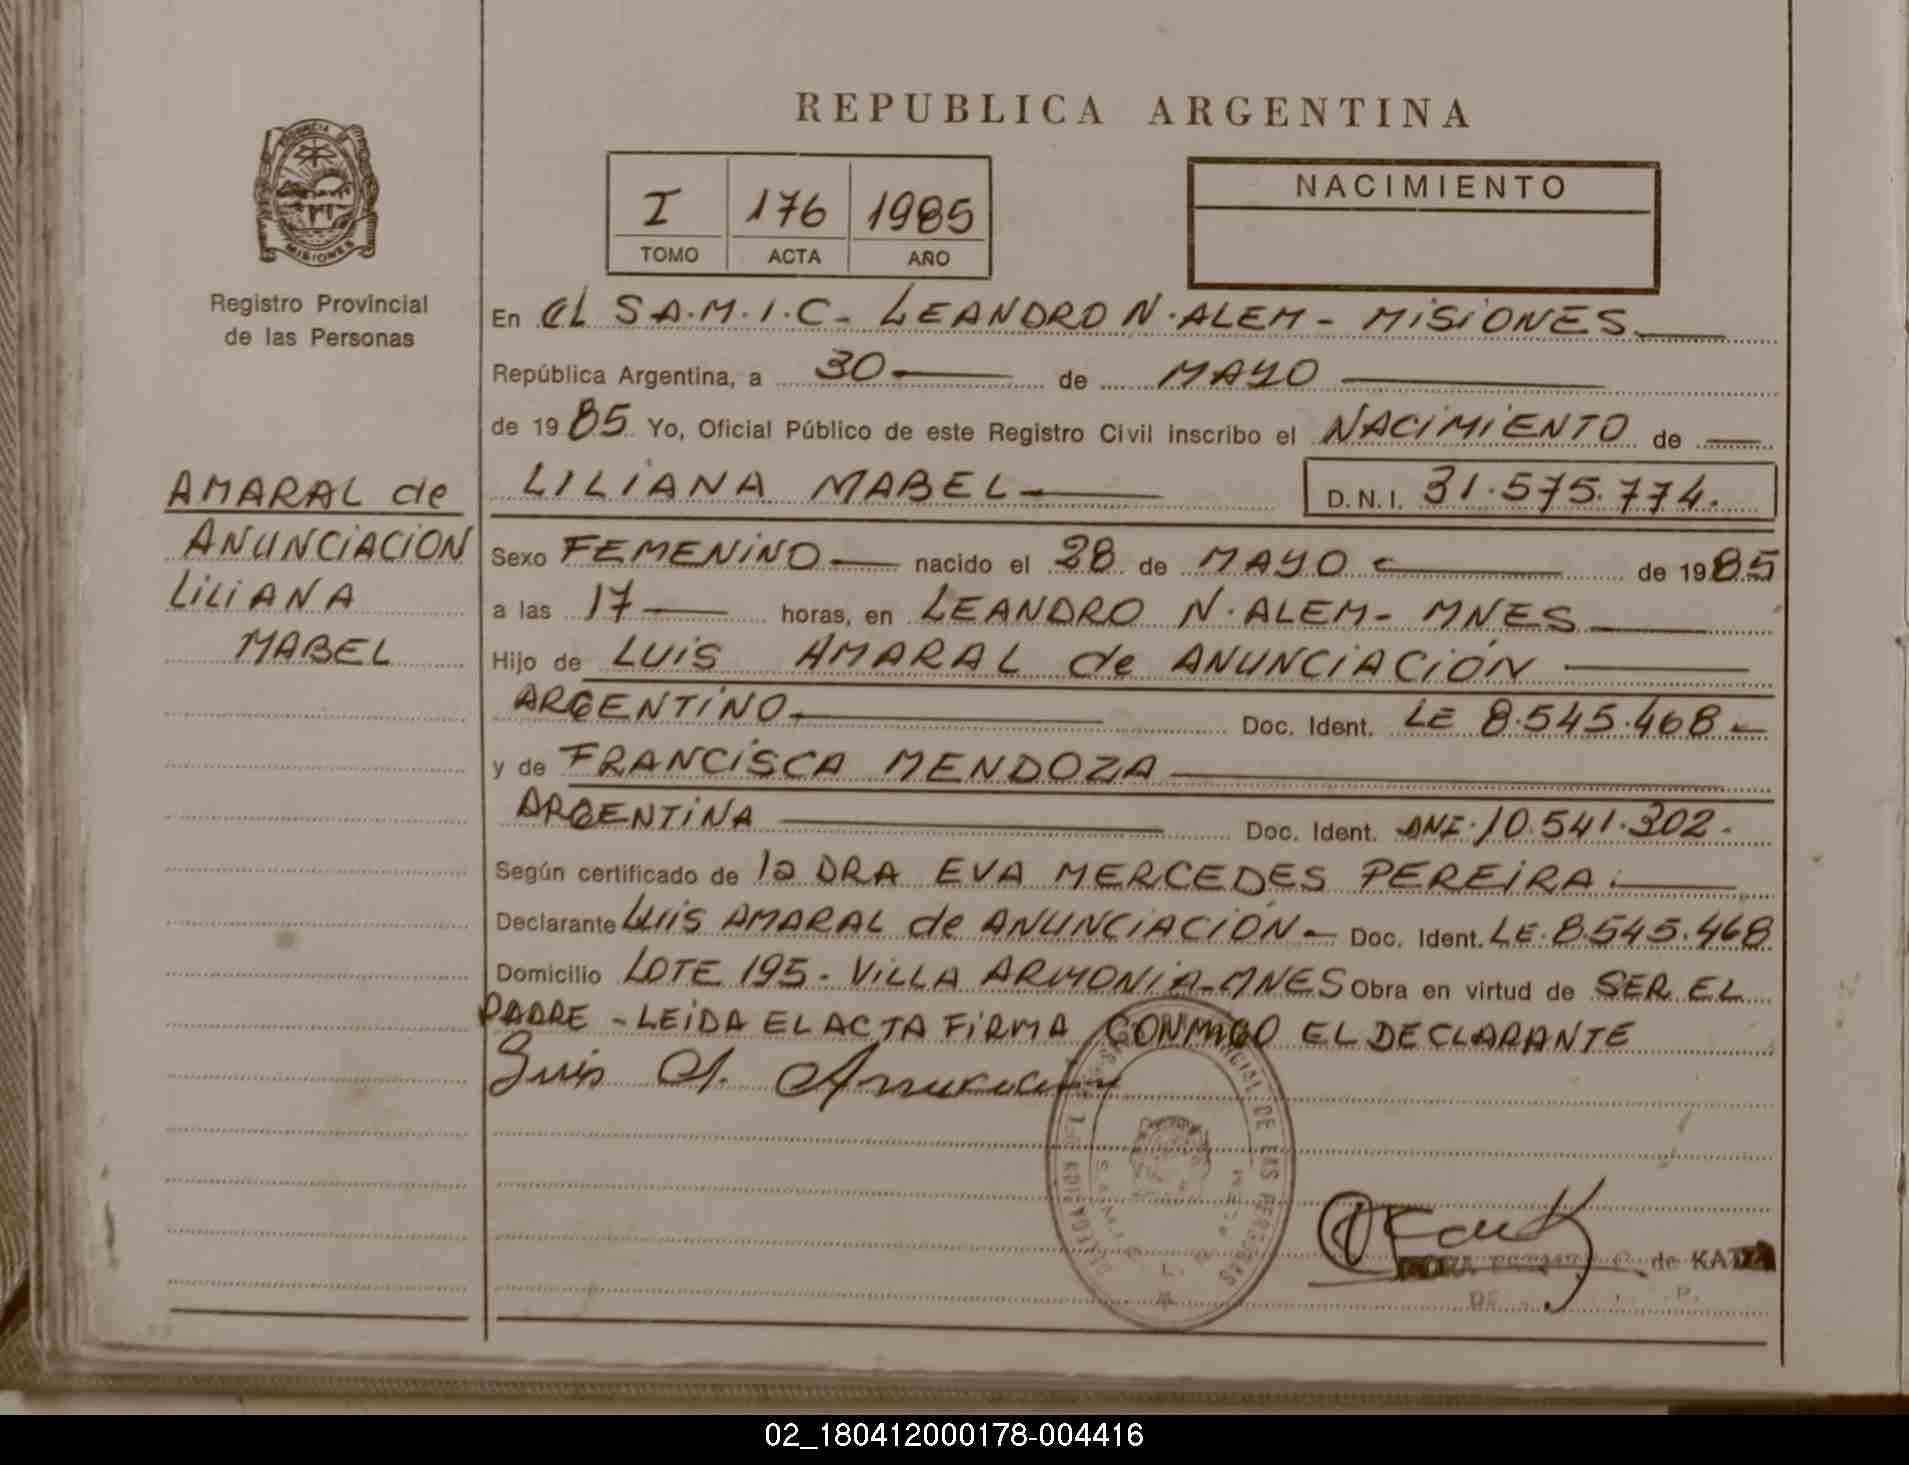 REPUBLICA ARGENTINA
PROVINCIA DE
MISIONES
Registro Provincial
de las Personas
I 176 1985
TOMO ACTA AÑO
NACIMIENTO
En el S.A.M.I.C- LEANDRO N. ALEM - MISIONES
República Argentina, a 30 de MAYO
de 1985 Yo, Oficial Público de este Registro Civil inscribo el NACIMIENTO de
AMARAL de
ANUNCIACION
LILIANA
MABEL
LILIANA MABEL D.N.I. 31.575.774.
Sexo FEMENINO nacido el 28 de MAYO de 1985
a las 17 horas, en LEANDRO N. ALEM- MNES
Hijo de LUIS AMARAL de ANUNCIACIÓN
ARGENTINO Doc. Ident. LE 8.545.468-
y de FRANCISCA MENDOZA
ARGENTINA Doc. Ident. DNI. 10.541.302.
Según certificado de la DRA EVA MERCEDES PEREIRA.
Declarante LUIS AMARAL de ANUNCIACIÓN- Doc. Ident. LE. 8.545.468
Domicilio LOTE 195- VILLA ARMONIA-MNES Obra en virtud de SER EL
PADRE - LEIDA EL ACTA FIRMA CONMIGO EL DECLARANTE
Luis A. Anunciación
DE LAS PERSONAS
de KATZ
02_180412000178-004416